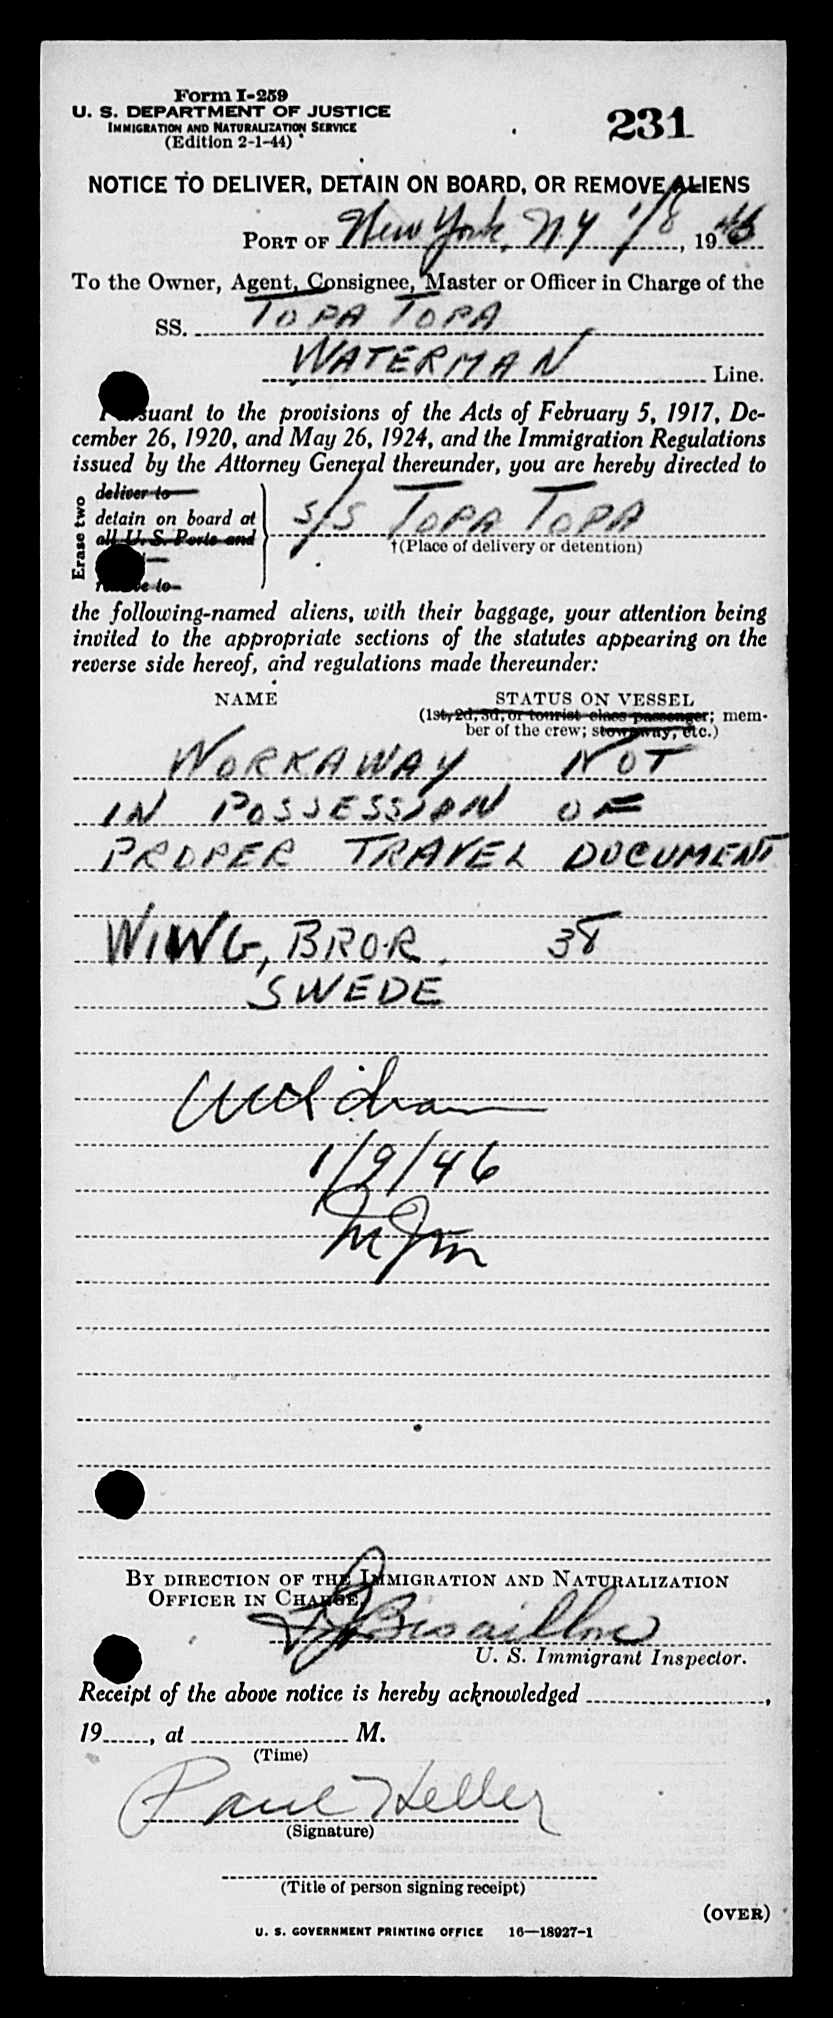 Form I-259
U. S. DEPARTMENT OF JUSTICE
IMMIGRATION AND NATURALIZATION SERVICE
(Edition 2-1-44)
231
NOTICE TO DELIVER, DETAIN ON BOARD, OR REMOVE ALIENS
PORT OF New York, N.Y 1/8, 1946
To the Owner, Agent, Consignee, Master or Officer in Charge of the
SS. TOPA TOPA
WATERMAN Line.
Pursuant to the provisions of the Acts of February 5, 1917, De-
cember 26, 1920, and May 26, 1924, and the Immigration Regulations
issued by the Attorney General thereunder, you are hereby directed to
Erase two
deliver to
detain on board at
all U. S. Ports and
remove to
S/S TOPA TOPA
†(Place of delivery or detention)
the following-named aliens, with their baggage, your attention being
invited to the appropriate sections of the statutes appearing on the
reverse side hereof, and regulations made thereunder:
NAME STATUS ON VESSEL
(1st, 2d, 3d, or tourist class passenger; mem-
ber of the crew; stowaway, etc.)
WORKAWAY NOT
IN POSSESSION OF
PROPER TRAVEL DOCUMENT
WIWG, BROR. 38
SWEDE
1/9/46
BY DIRECTION OF THE IMMIGRATION AND NATURALIZATION
OFFICER IN CHARGE,
Bisaillon
U. S. Immigrant Inspector.
Receipt of the above notice is hereby acknowledged
19, at M.
(Time)
Paul Heller
(Signature)
(Title of person signing receipt)
(OVER)
U. S. GOVERNMENT PRINTING OFFICE 16—18927-1